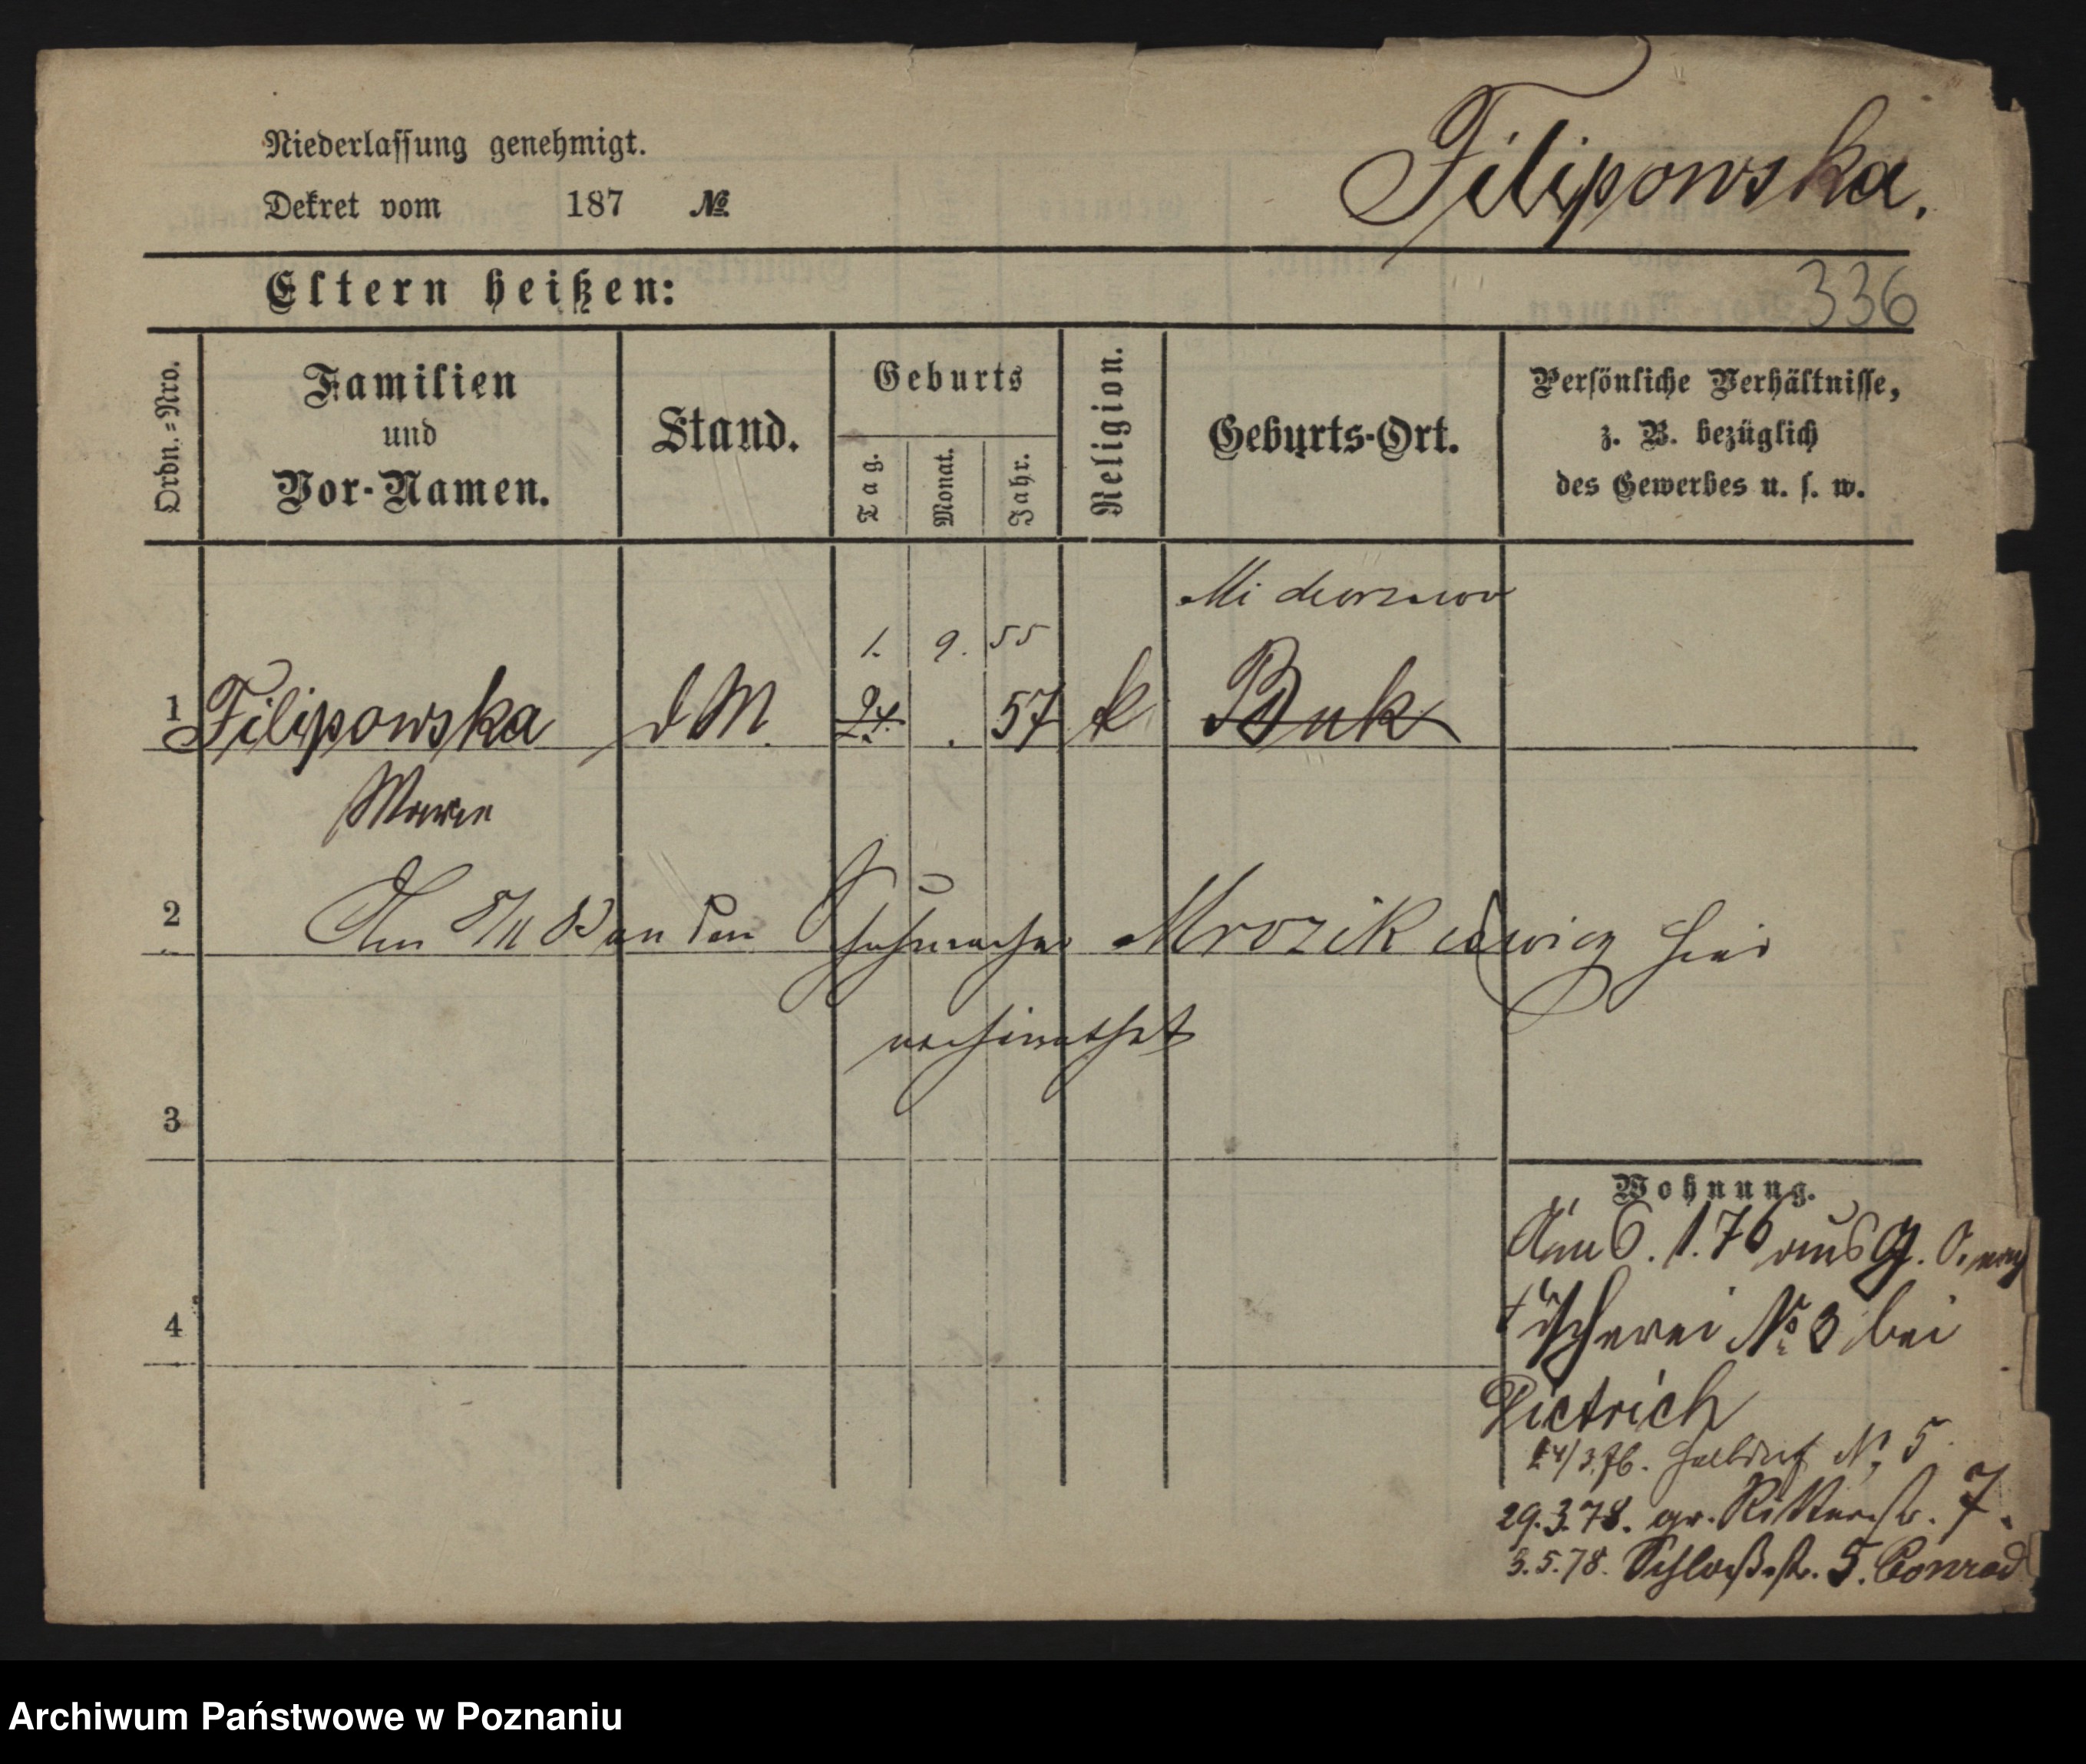 Niederlassung genehmigt.
Dekret vom 187 №
Filipowska.
Eltern heißen:
336
Ordn.=Nro.
Familien
und
Vor-Namen.
Stand.
Geburts
Tag.
Monat.
Jahr.
Religion.
Geburts-Ort.
Persönliche Verhältnisse,
z. B. bezüglich
des Gewerbes u. s. w.
1. 9. 55
1 Filipowska d M. 24. 57 k Buk
2 Am an den Schuhmacher hier
verheirathet
3
Wohnung.
Am 6. 1. 76 aus
4
No 3 bei
Dietrich
24/3.76. Halbdorf N. 5
29.3.78. gr. Ritterstr. 7.
3.5.78. Schloßstr. 5. Conrad
Archiwum Państwowe w Poznaniu